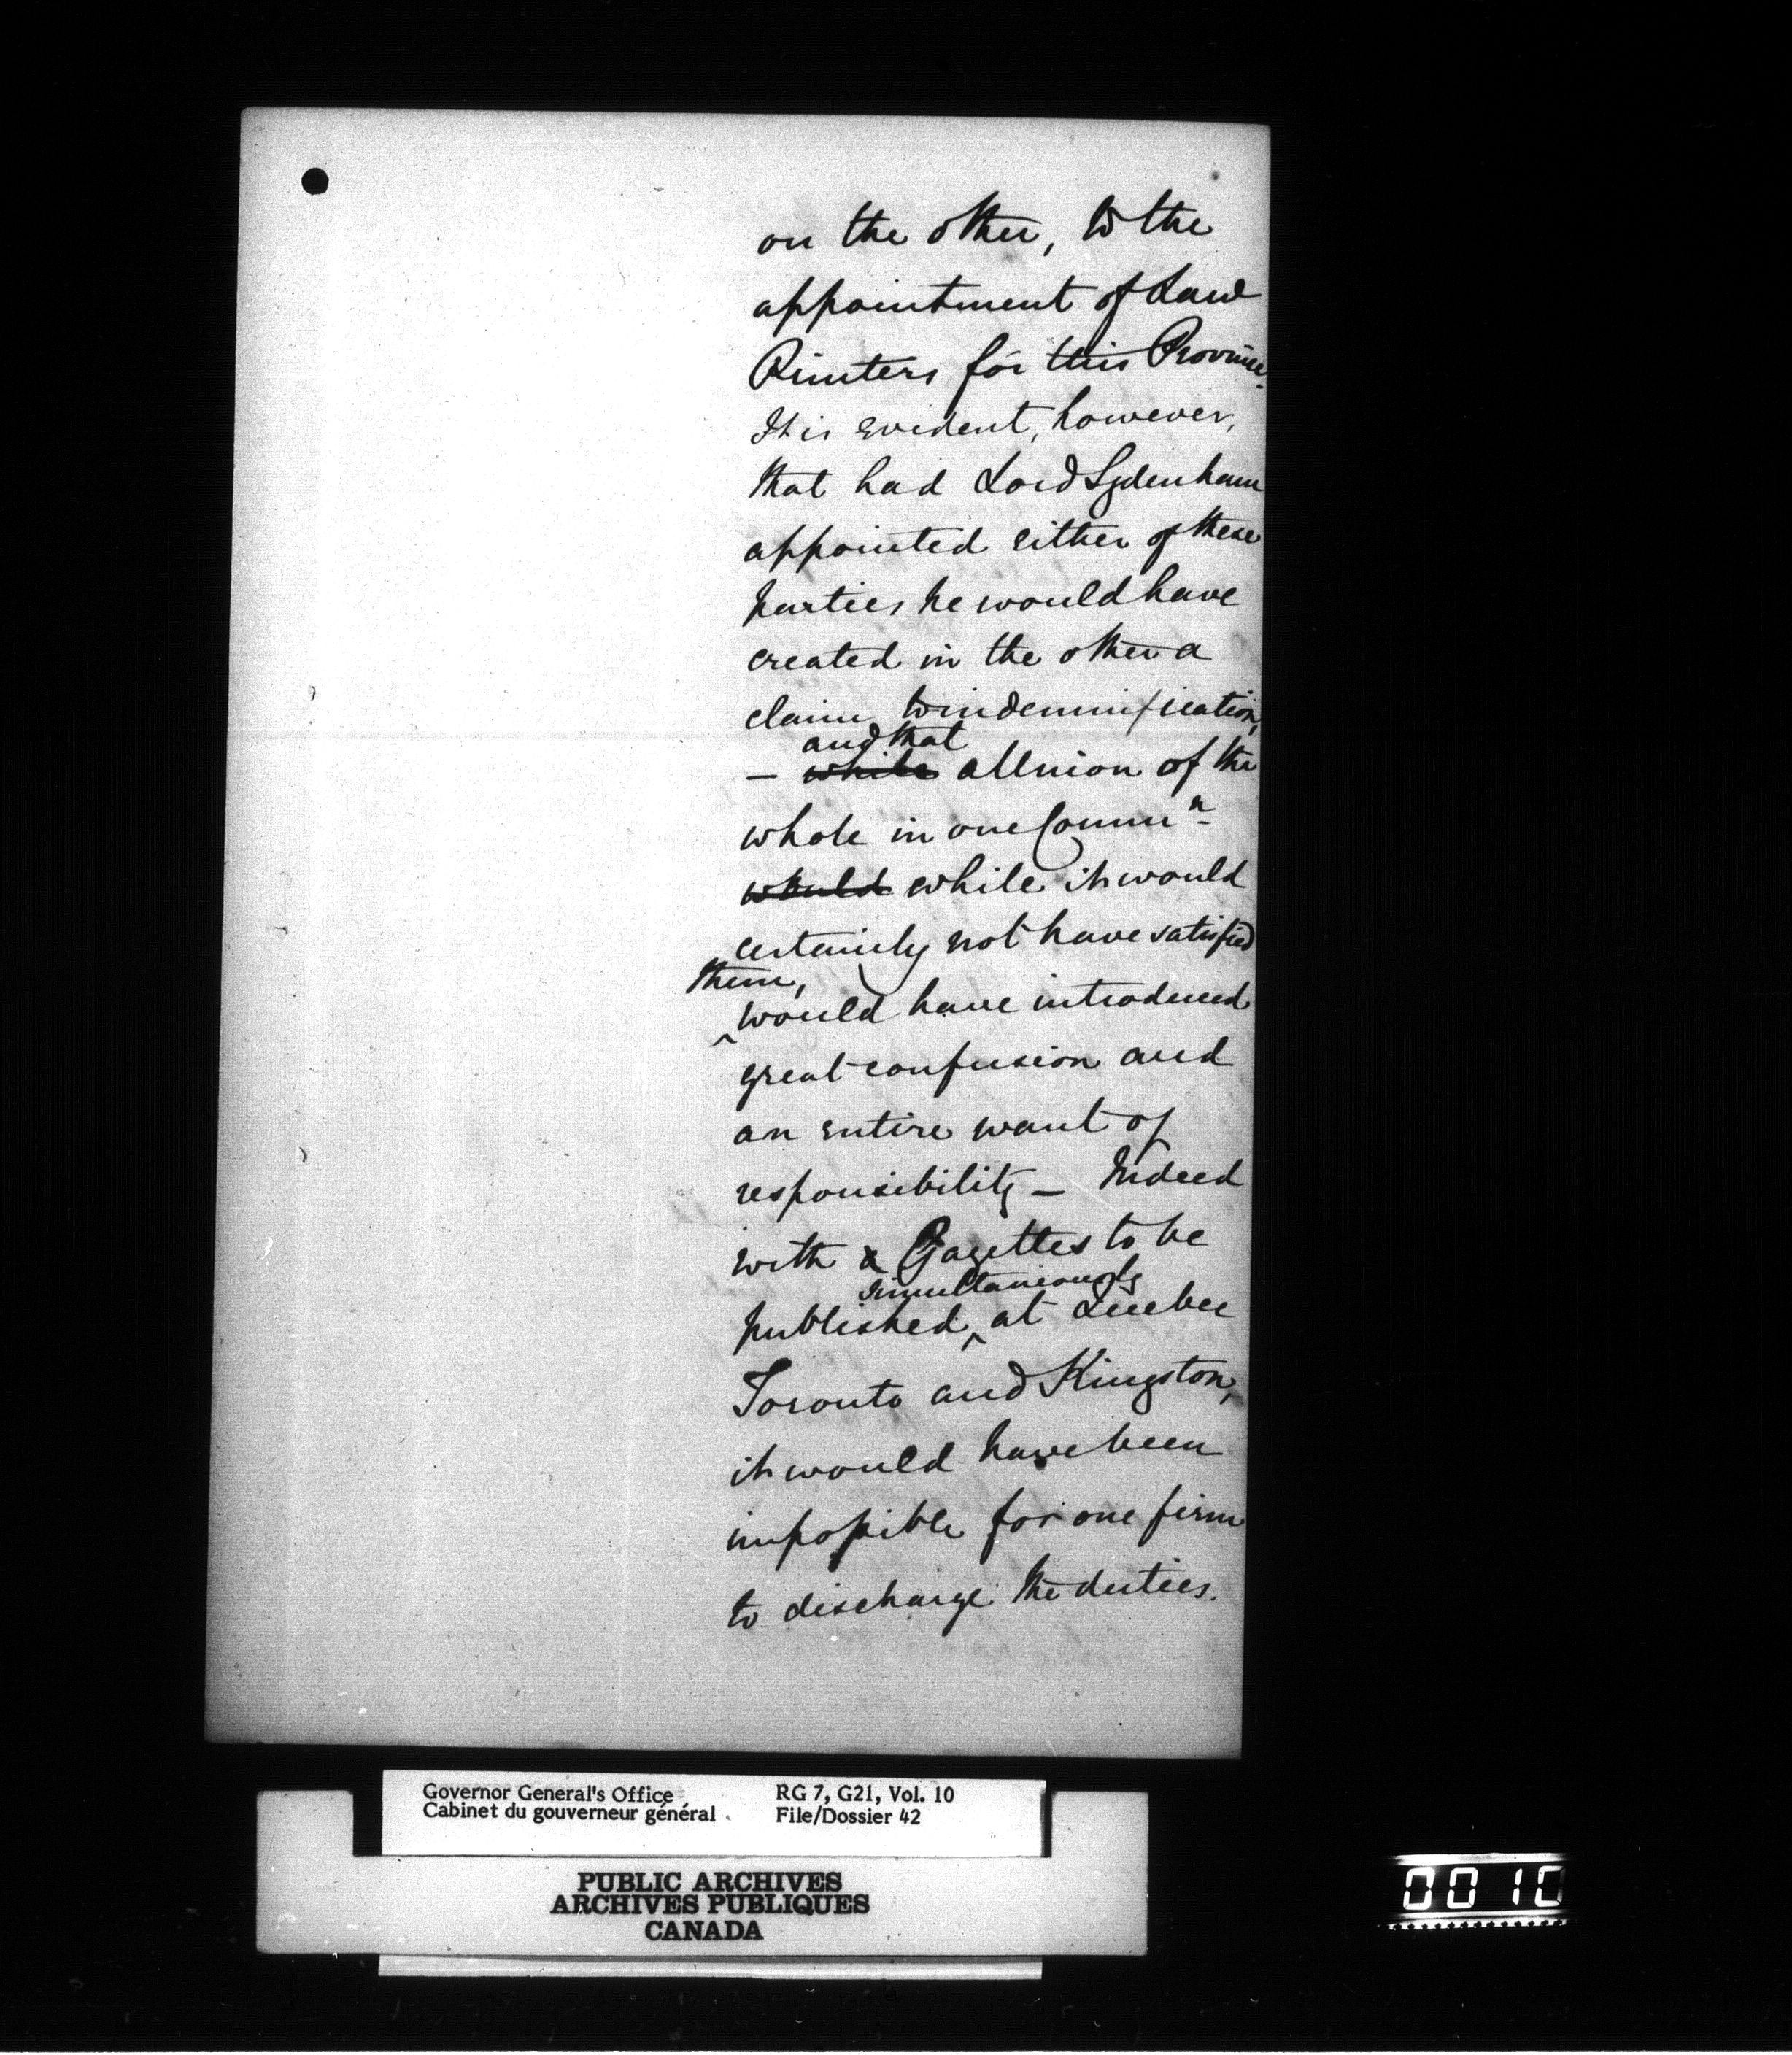 on the other, to the
appointment of Law
Printers for this Province.
It is evident, however,
that had Lord Sydenham
appointed either of these
parties he would have
created in the other a
claim to indemnification,
and that
— while a Union of the
whole in one Commn
would while it would
certainly not have satisfied
them,
would have introduced
great confusion and
an entire want of
responsibility — Indeed
with a Gazettes to be
simultaneously
published at Quebec
Toronto and Kingston,
it would have been
impossible for one firm
to discharge the duties.
Governor General's Office RG 7, G21, Vol. 10
Cabinet du gouverneur général File/Dossier 42
PUBLIC ARCHIVES
ARCHIVES PUBLIQUES
CANADA
0010